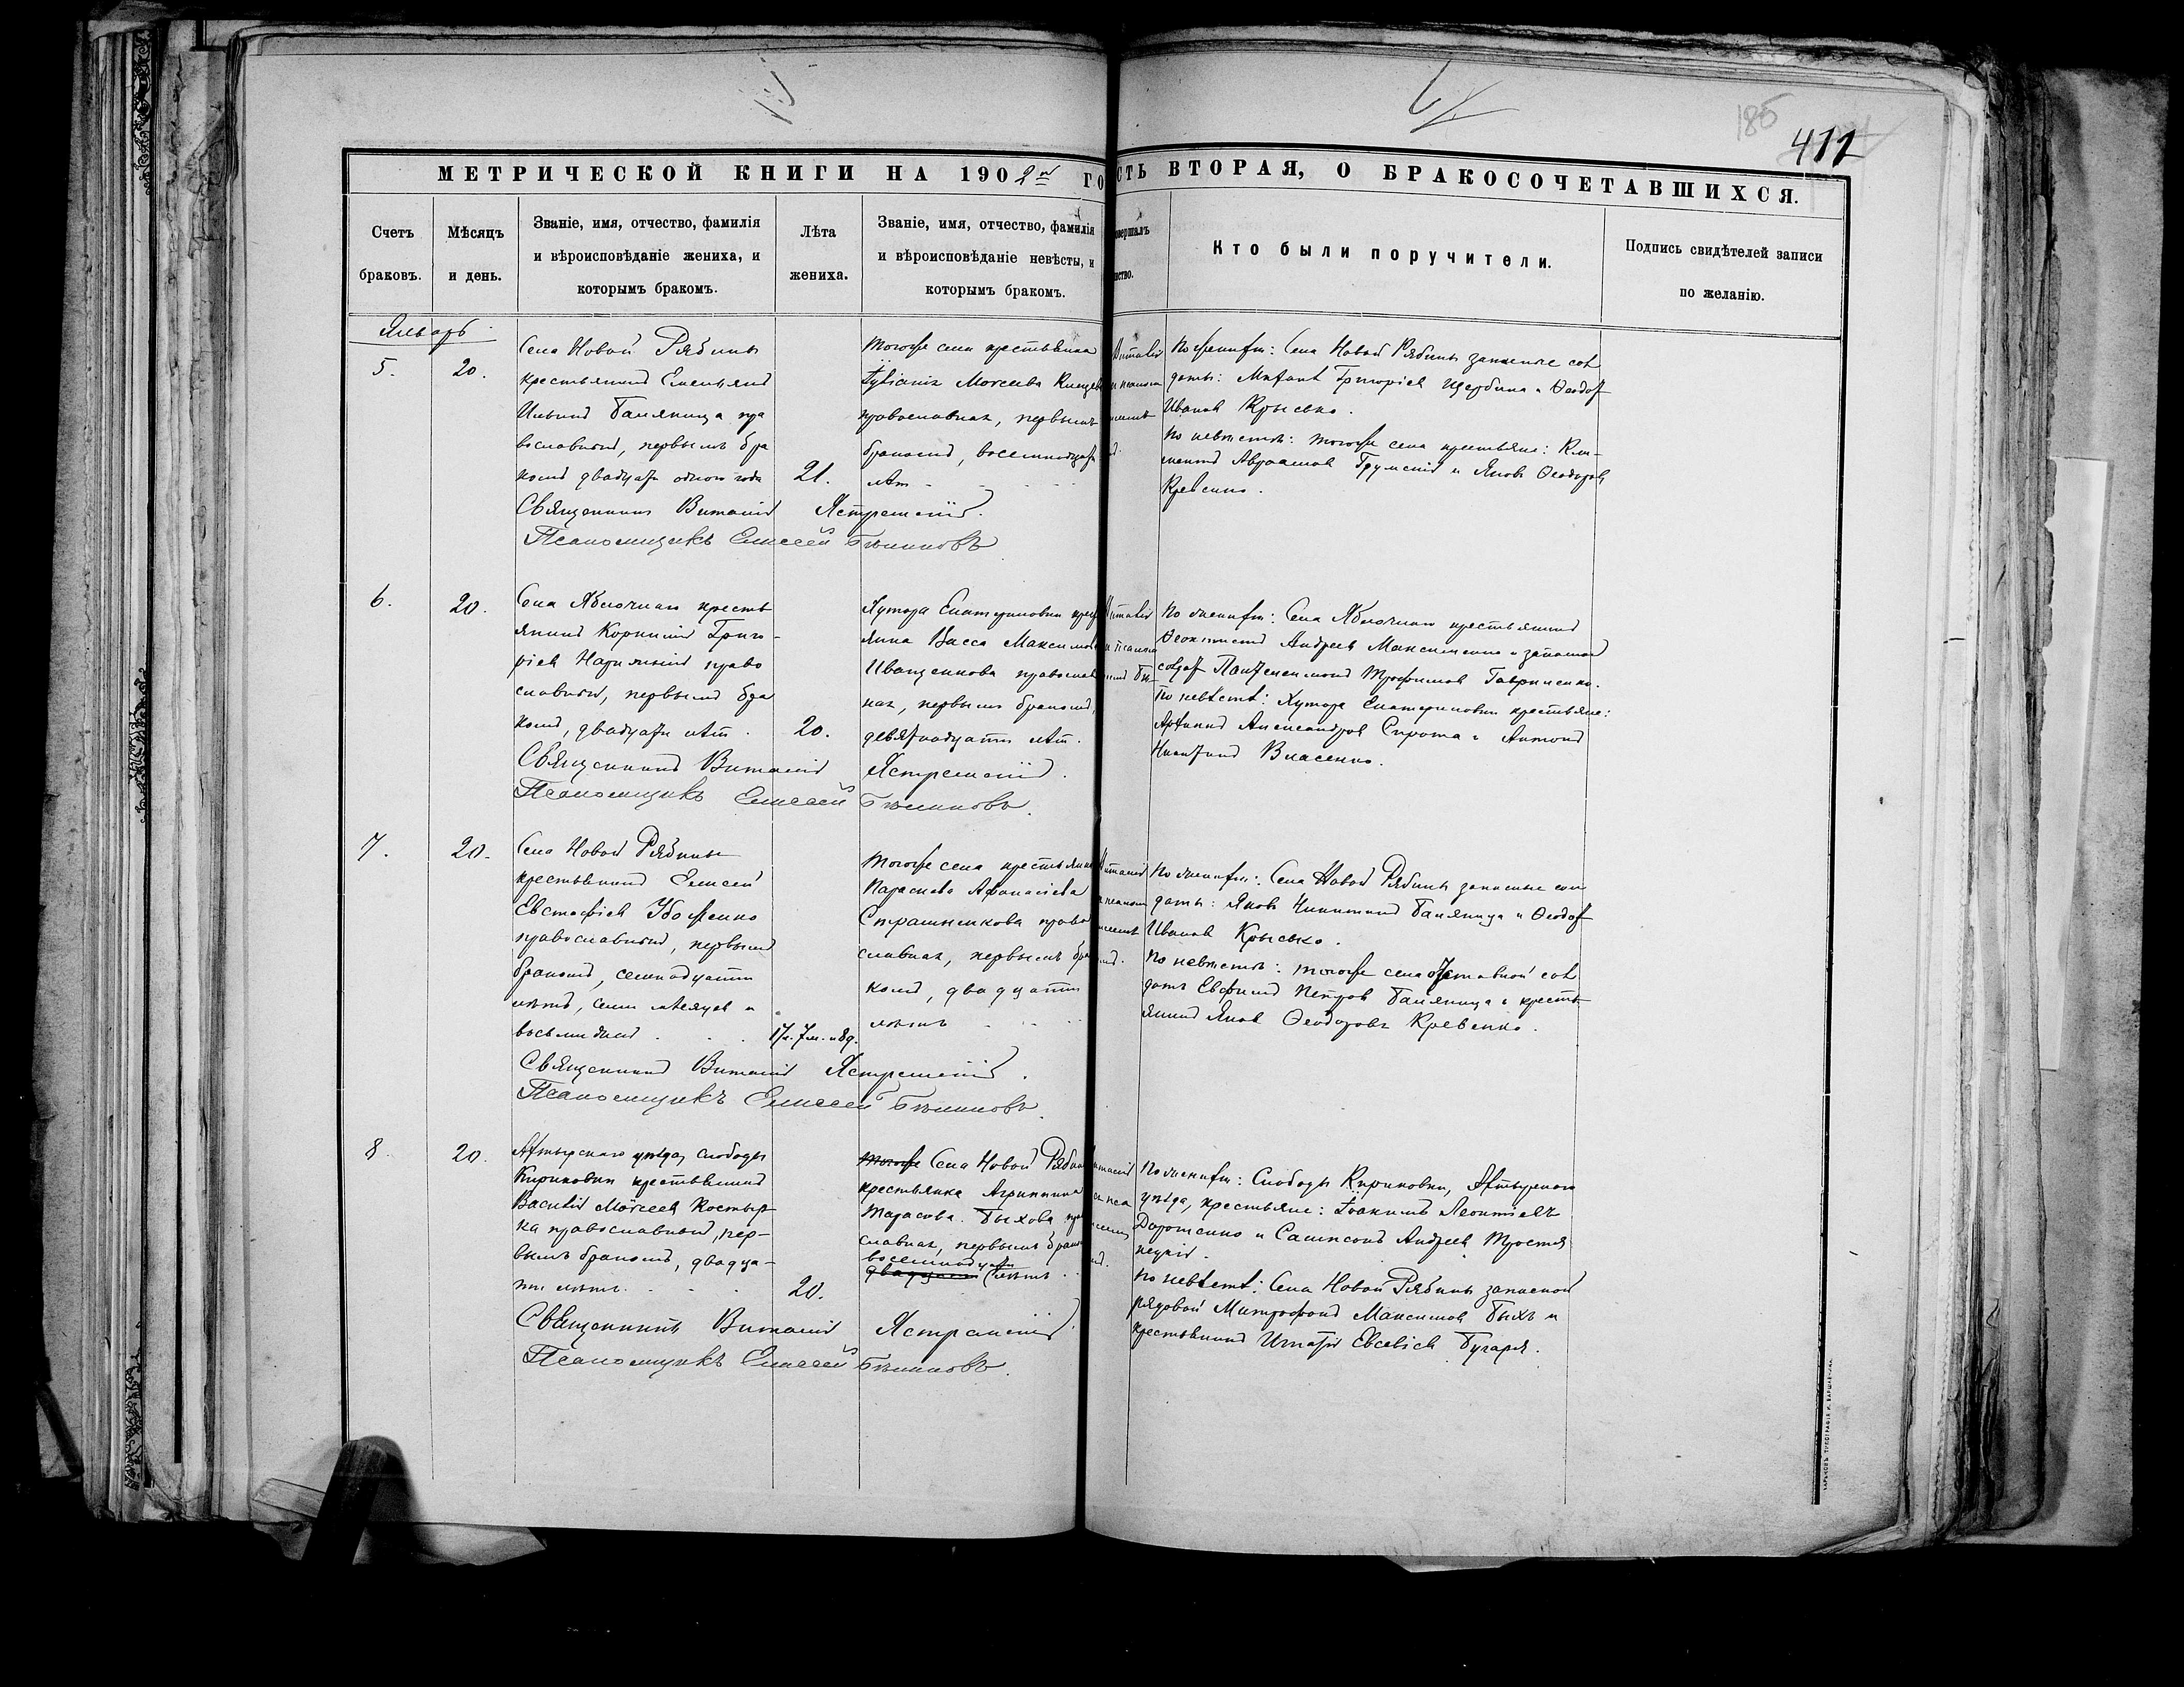 185
411
МЕТРИЧЕСКОЙ КНИГИ НА 1902й ГО
СТЬ ВТОРАЯ, О БРАКОСОЧЕТАВШИХСЯ.
Счетъ браковъ.
Мѣсяцъ и день.
Званіе, имя, отчество, фамилія
и вѣроисповѣданіе жениха, и
которымъ бракомъ.
Лѣта жениха.
Званіе, имя, отчество, фамилія
и вѣроисповѣданіе невѣсты, и
которымъ бракомъ.
овершалъ
нство.
Кто были поручители.
Подпись свидѣтелей записи
по желанію.
Январь
5.
20.
Села Новой Рябины
крестьянинъ Емельянъ
Ильинъ Баляница пра
вославный, первымъ бра
комъ двадцати одного года
21.
Тогоже села крестьянка
Іуліанія Моисеева
православная, первымъ
бракомъ, восемнадцати
лѣт
По женихѣ: Села Новой Рябины запасные сол
даты: Михаил Григоріев Щербина и Ѳеодот
Иванов Крысько.
По невѣстѣ: тогоже села крестьяне: Кли-
ментъ Авраамов Грумскій и Яковъ Ѳеодоров
Кревсино.
Священникъ Виталій Ястремскій.
Псаломщикъ Елисей Бѣликовъ
6.
20.
Села Яблочнаго кресть
янинъ Корнилій Григо-
ріев православ
славный, первымъ бра
комъ, двадцати лѣт.
20.
Хутора Екатериновки крест
янка Васса Максимов
Иващенкова православ
ная, первымъ бракомъ,
девятнадцати лѣт.
По женихѣ: Села Яблочнаго крестьянинъ
Ѳеоктистъ Андреев Максименко и запасной
солдат Пантелеимонъ Трофимов Гавриленко.
По невѣстѣ: Хутора Екатериновки крестьяне:
Александров Сирота и Антонъ
Власенко.
Священникъ Виталій Ястремскій.
Псаломщикъ Елисей Бѣликовъ.
7.
20.
Села Новой Рябины
крестьянинъ Елисей
Евстафіев Убоженко
православный, первымъ
бракомъ, семнадцати
лѣтъ, семи мѣсяцев и
восьми дней
17л. 7м. и 8д.
Тогоже села крестьянка
Параскева Афанасіева
Страшненкова право
славная, первымъ бра
комъ, двадцати
лѣтъ
По женихѣ: Села Новой Рябины запасные сол
даты: Яковъ Никитинъ Баляница и Ѳеодот
Иванов Крысько.
По невѣстѣ: тогоже села отставной сол
датъ Евфимъ Петров Баляница и кресть
янинъ Яков Ѳеодоровъ Кревенко.
Священникъ Виталій Ястремскій.
Псаломщикъ Елисей Бѣликовъ.
8
20.
Ахтырскаго уѣзда, слободы
Кириковки крестьянинъ
Василій Моѵсеев Костыр
ка православный, пер-
вымъ бракомъ, двадца-
ти лѣтъ.
20.
Тогоже Села Новой Рябин
крестьянка Агриппина
Тарасова Быхова пра
славная, первымъ брак
восемнадцати
двадцати лѣтъ
По женихѣ: Слободы Кириковки, Ахтырскаго
уѣзда, крестьяне: Іоакимъ Леонтіевъ
Дорошенко и Сампсонъ Андреев Тростя
нецкій.
По невѣстѣ: Села Новой Рябины запасной
рядовой Митрофанъ Максимов Быхъ и
крестьянинъ Игнатій Евсевіев Бугаря.
Священникъ Виталій Ястремскій
Псаломщикъ Елисей Бѣликовъ.